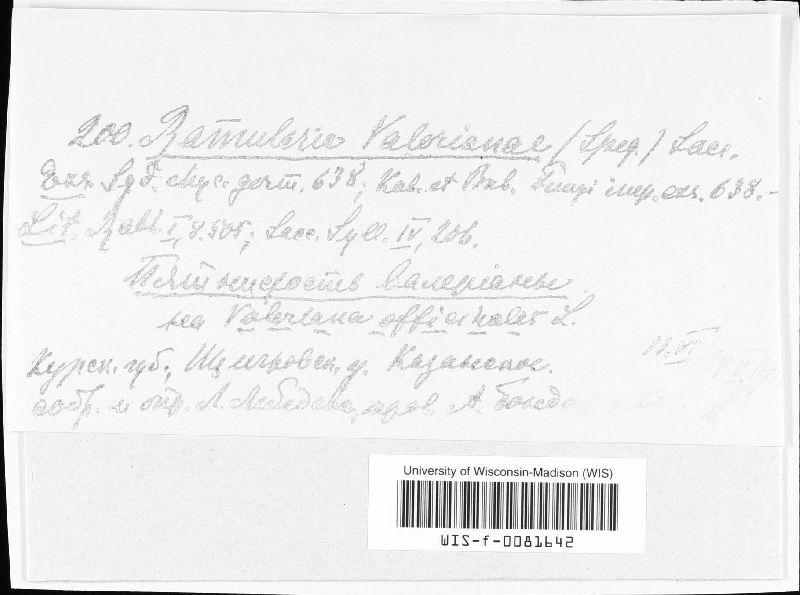 200. Ramularia Valerianae (Speg.) Sacc.
Exs. Syd. Myc. germ. 638; Kab. et Bub. Fungi imp. exs. 638.-
Lit. Rabh. I, 8. 505; Sacc. Syll. IV, 206.
Пятнистость валерианы
на Valeriana officinalis L.
Курск. губ., Щигровск. у. Казанское.
собр. и опр. Л. Лебедева, пров. А.
University of Wisconsin-Madison (WIS)
WIS-f-0081642